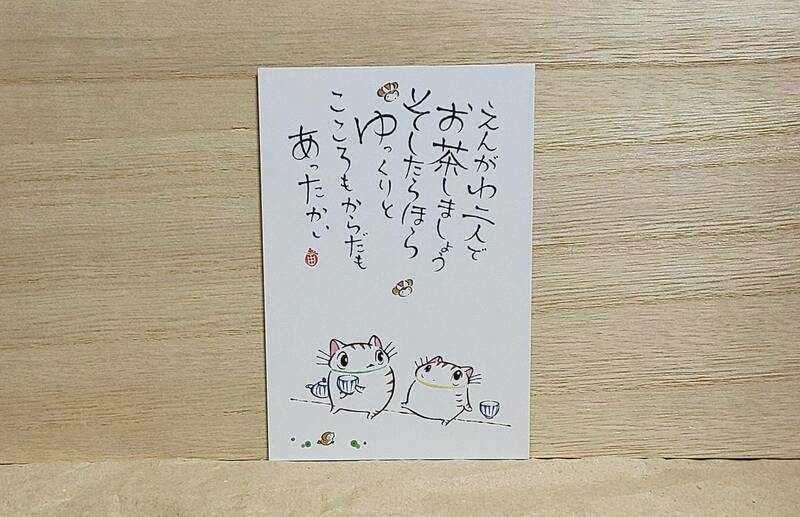 えんがわ二人で
お茶しましょう
そしたらほら
ゆっくりと
こころもからだも
あったかい